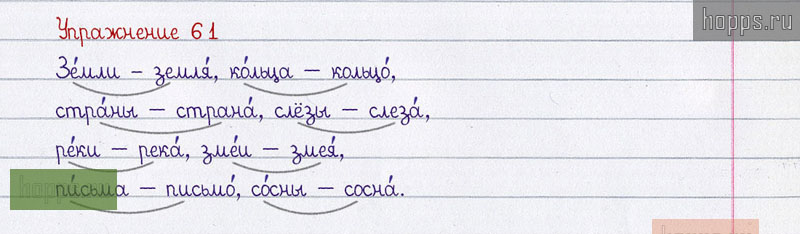 hopps.ru
Упражнение 61
Зе́мли – земля́, ко́льца – кольцо́,
стра́ны – страна́, слёзы – слеза́,
ре́ки – река́, зме́и – змея́,
пи́сьма – письмо́, со́сны – сосна́.